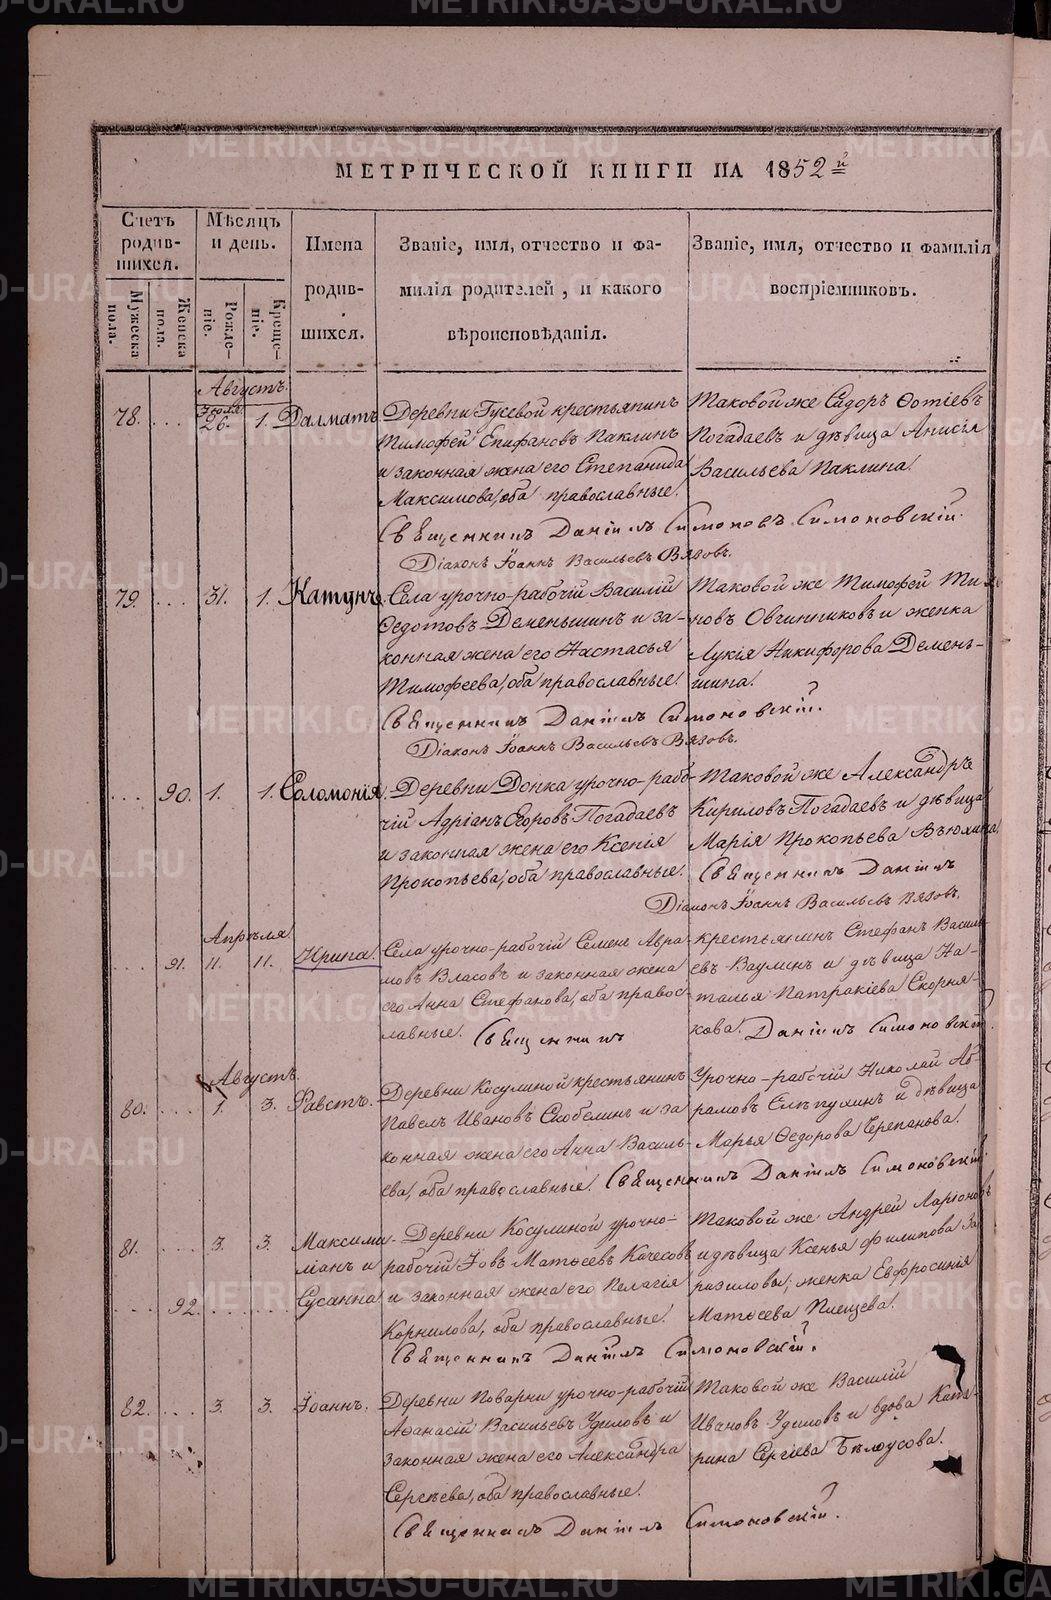 МЕТРИЧЕСКОЙ КНИГИ НА 1852й
Счетъ родив-шихся.
Мѣсяцъ и день.
Имена родив-шихся.
Званіе, имя, отчество и фа-
милія родителей, и какого
вѣроисповѣданія.
Званіе, имя, отчество и фамилія
воспріемниковъ.
Мужеска пола.
Женска пола.
Рожде-ніе.
Креще-ніе.
Августъ.
78. ... Іюля 26. 1. Далматъ.
Деревни Гусевой крестьянинъ
Тимофей Епифановъ Паклинъ
и законная жена его Степанида
Максимова, оба православные.
Таковой же Сидоръ Ѳотіевъ
Погадаевъ и дѣвица Анисія
Васильева Паклина.
Священникъ Даніилъ Симоновъ Симоновскій.
Діаконъ Іоаннъ Васильевъ Вязовъ.
79. ... 31. 1. Катунъ.
Села урочно-рабочій Василій
Ѳедотовъ Деменьшинъ и за-
конная жена его Настасья
Тимофеева, оба православные.
Таковой же Тимофей
новъ Овчинниковъ и женка
Лукія Никифорова Демень-
шина.
Священникъ Даніилъ Симоновскій.
Діаконъ Іоаннъ Васильевъ Вязовъ.
... 90. 1. 1. Соломонія.
Деревни Донка урочно-рабо-
чій Адріанъ Егоровъ Погадаевъ
и законная жена его Ксенія
Прокопьева, оба православные.
Таковой же Александръ
Кириловъ Погадаевъ и дѣвица
Марія Прокопьева Вьюхина
Священникъ Даніилъ
Діаконъ Іоаннъ Васильевъ Вязовъ.
Апрѣля
... 91. 11. 11. Ирина.
Села урочно-рабочій Семенъ Авра-
мовъ Власовъ и законная жена
его Анна Стефанова, оба правос-
лавные. Священникъ
Крестьянинъ Стефанъ Василь-
евъ Ваулинъ и дѣвица На-
талья Патракіева Скорня-
кова. Даніилъ Симоновскій.
Августъ.
80. ... 1. 3. Фавстъ.
Деревни Косулиной крестьянинъ
Павелъ Ивановъ Скобелинъ и за
конная жена его Анна Василь-
ева, оба православные.
Урочно-рабочій Николай Аб-
рамовъ Слѣпухинъ и дѣвица
Марья Ѳедорова Черепанова.
Священникъ Даніилъ Симоновскій.
81. ... 3. 3. Максими-
ліанъ и
... 92. ... ... Сусанна
Деревни Косулиной урочно-
рабочій Іовъ Матѳеевъ Качесовъ
и законная жена его Пелагія
Корнилова, оба православные.
Таковой же Андрей Ларіоновъ
и дѣвица Ксенья Филипова За
разиловы; женка Евфросинія
Матѳеева Плещева.
Священникъ Даніилъ Симоновскій.
82. ... 3. 3. Іоаннъ.
Деревни Поварни урочно-рабочій
Аѳанасій Васильевъ Удиловъ и
законная жена его Александра
Сергѣева, оба православные.
Таковой же Василій
Ивановъ Удиловъ и вдова Кате-
рина Сергіева Бѣлоусова.
Священникъ Даніилъ Симоновскій.
METRIKI.GASO-URAL.RU